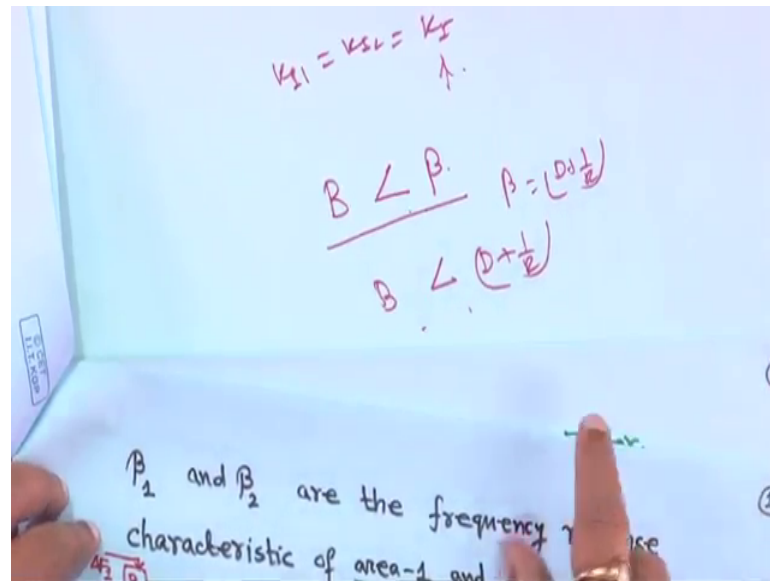 K_{I1} = K_{I2} = K_I
↑.
B < β.
β = (D+1/R)
B < (D+1/R)
© CET
I.I.T. KGP
β₁ and β₂ are the frequency
characteristic of area-1 and